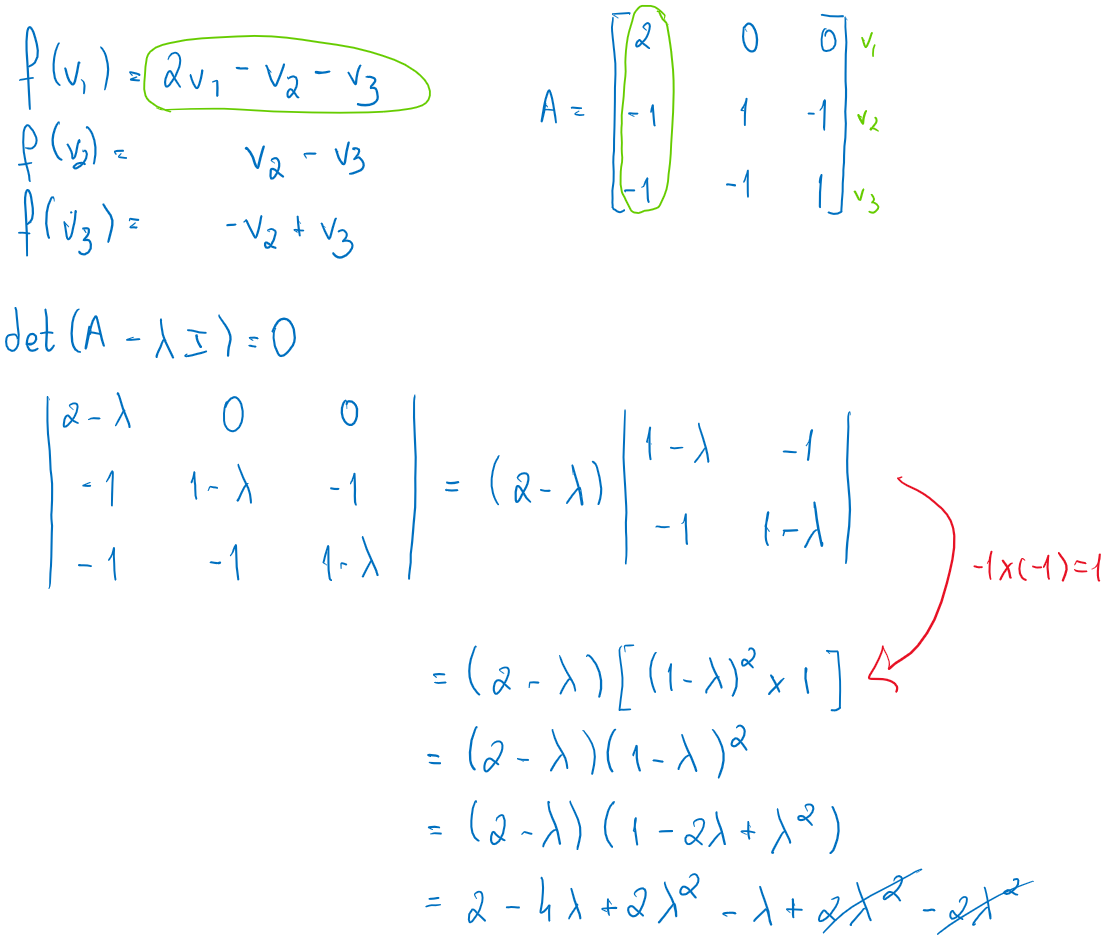 f(v₁) = 2v₁ - v₂ - v₃
f(v₂) = v₂ - v₃
f(v₃) = -v₂ + v₃
A = [ 2 0 0 ] v₁
-1 1 -1 v₂
-1 -1 1 v₃
det(A - λI) = 0
| 2-λ 0 0 |
| -1 1-λ -1 | = (2-λ) | 1-λ -1 |
| -1 -1 1-λ | | -1 1-λ |
-1×(-1)=1
= (2-λ)[(1-λ)² × 1]
= (2-λ)(1-λ)²
= (2-λ)(1 - 2λ + λ²)
= 2 - 4λ + 2λ² - λ + 2λ² - 2λ²